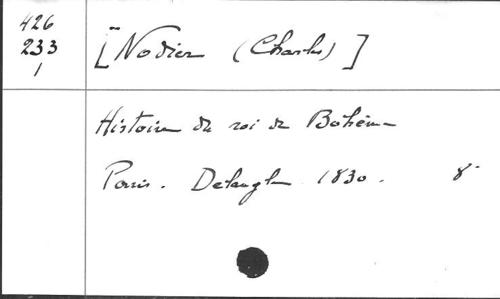 426
233
1
[Nodier (Charles)]
Histoire du roi de Bohême
Paris. Delangle 1830. 8°